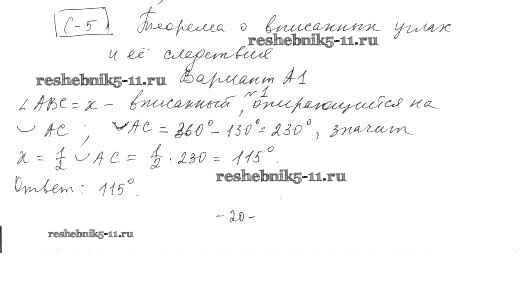 С-5 Теорема о вписанных углах
reshebnik5-11.ru
и её следствия
reshebnik5-11.ru Вариант А1
№1
∠ABC = x – вписанный, опирающийся на
◡ AC ; ◡AC = 360° - 130° = 230°, значит
x = 1/2 ◡ AC = 1/2 · 230 = 115°.
reshebnik5-11.ru
Ответ: 115°.
- 20 -
reshebnik5-11.ru